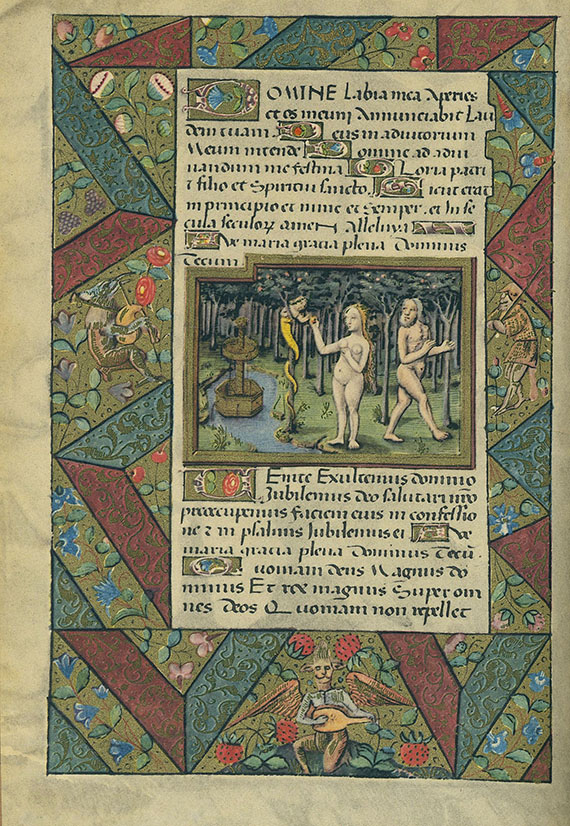 DOMINE Labia mea Aperies
et os meum Annunciabit Lau
dem tuam Deus in adiutorium
Meum intende Domine ad adiu
uandum me festina Gloria patri
et filio et Spiritui sancto Sicut erat
in principio et nunc et Semper et In se
cula seculorꝝ amen Alleluya
Aue maria gracia plena Dominus
Tecum
Venite Exultemus domino
Jubilemus deo salutari nrō
preoccupemus Faciem eius in confessio
ne ⁊ in psalmis Iubilemus ei Aue
maria gracia plena Dominus Tecū
Quoniam deus Magnus do
minus Et rex magnus Super om
nes deos Quoniam non repellet